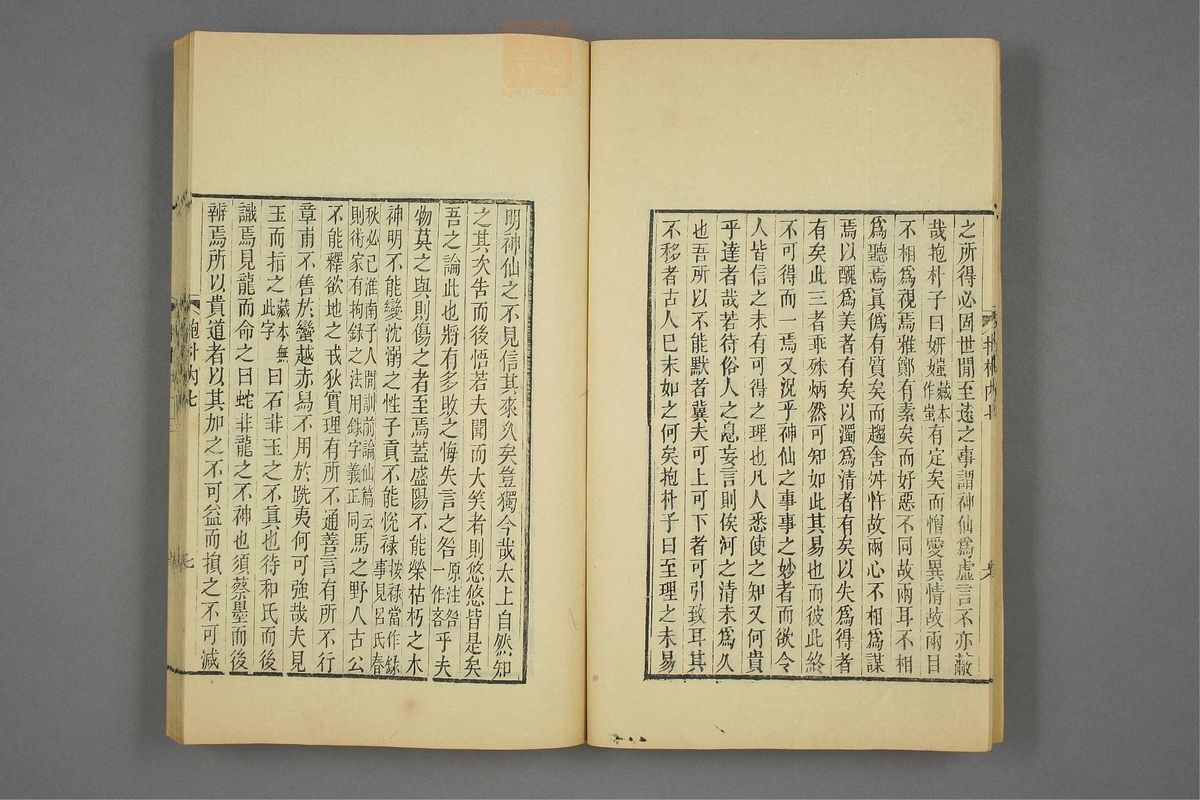 之所得必固世間至遠之事謂神仙爲虛言不亦蔽
哉抱朴子曰妍媸藏本作蚩有定矣而憎愛異情故兩目
不相爲視焉雅鄭有素矣而好惡不同故兩耳不相
爲聽焉眞僞有質矣而趨舍舛忤故兩心不相爲謀
焉以醜爲美者有矣以濁爲清者有矣以失爲得者
有矣此三者乖殊炳然可知如此其易也而彼此終
不可得而一焉又況乎神仙之事事之妙者而欲令
人皆信之未有可得之理也凡人悉使之知又何貴
乎達者哉若待俗人之息妄言則俟河之清未爲久
也吾所以不能默者冀夫可上可下者可引致耳其
不移者古人已末如之何矣抱朴子曰至理之未易
明神仙之不見信其來久矣豈獨今哉太上自然知
之其次告而後悟若夫聞而大笑者則悠悠皆是矣
吾之論此也將有多敗之悔失言之咎原注咎一作吝乎夫
物莫之與則傷之者至焉蓋盛陽不能榮枯朽之木
神明不能變沈溺之性子貢不能悅祿按祿當作錄事見呂氏春
秋必己淮南子人閒訓前論仙篇云
則術家有拘錄之法用錄字義正同馬之野人古公
不能釋欲地之戎狄實理有所不通善言有所不行
章甫不售於蠻越赤舄不用於跣夷何可強哉夫見
玉而指之藏本無此字曰石非玉之不眞也待和氏而後
識焉見龍而命之曰蛇非龍之不神也須蔡墨而後
辨焉所以貴道者以其加之不可益而損之不可減
抱朴內七
七